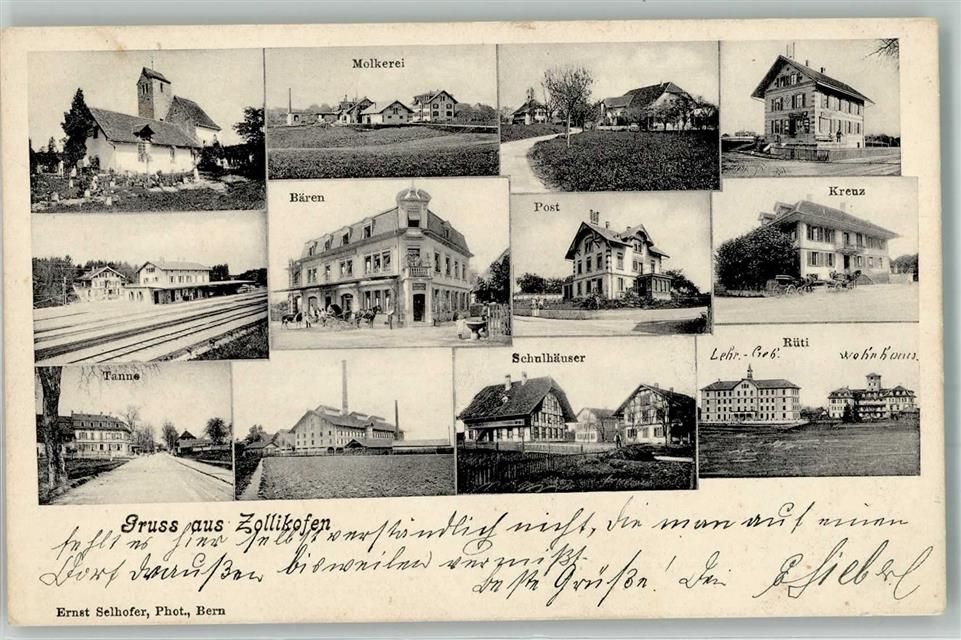 Molkerei
Bären
Post
Kreuz
Tanne
Schulhäuser
Rüti
Lehr.-Geb. Wohnhaus.
Gruss aus Zollikofen
fehlt es hier selbstverständlich nicht, die man auf einem
Dorf draußen bisweilen vermißt.
Beste Grüße! Dein
Ernst Selhofer, Phot., Bern